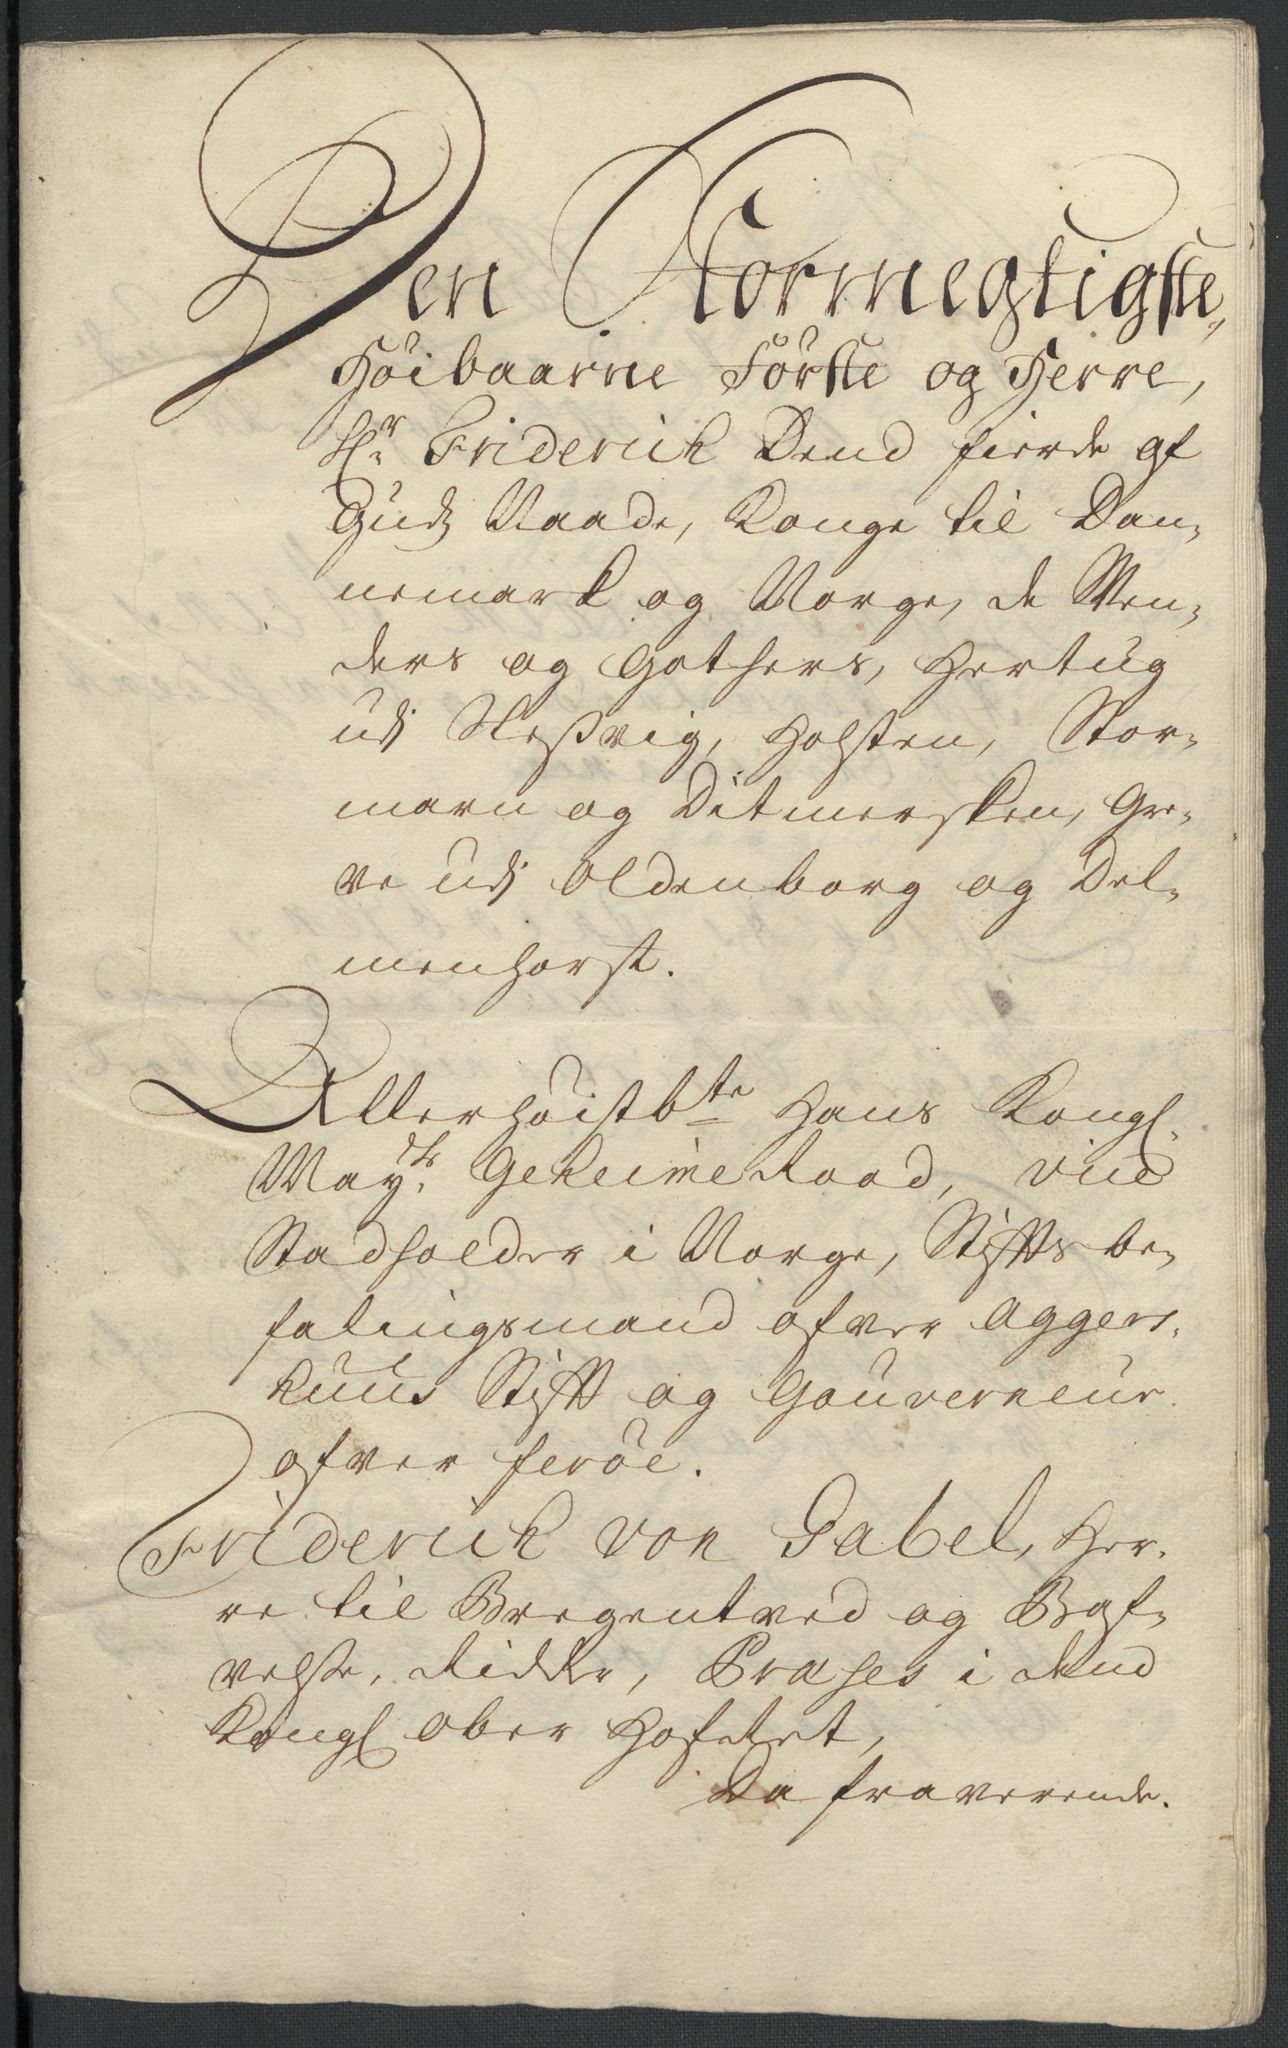 Den Stormegtigste,
Höibaarne Förste og Herre,
Hr. Friderich Dend fierde af
Guds Naade, Konge til Dan,
nemark og Norge, de Wen,
ders og Gothers, Hertug
udj Sleßvig, Holsten, Stor,
marn og Ditmersken, Gre,
ve udj Oldenborg og Del,
menhorst.
Allerhöistbte Hans Kongl.
Mayts. Geheime Raad, vice
Stadholder i Norge, Stiffts be,
falingsmand ofver Aggers,
huus Stifft og Gouverneur
ofver feröe.
Friderich von Gabel, Her,
re til Bregentved og Baf,
velse, Ridder, Præses i dend
Kongl Ober Hofret,
Da fraværende.